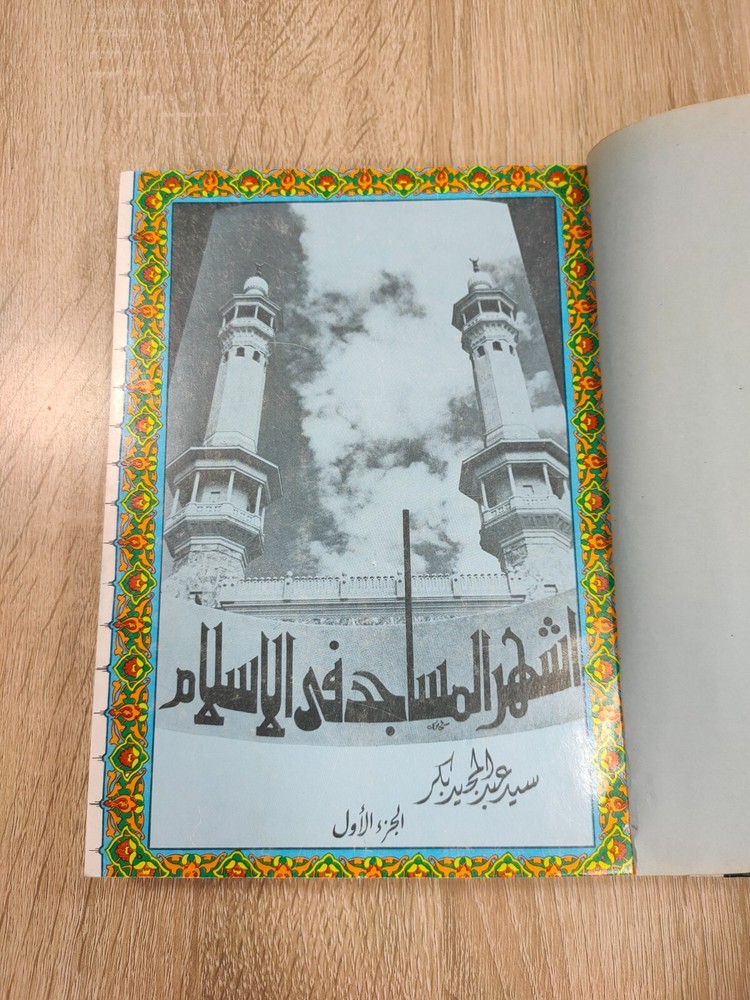 اشهر المساجد فى الإسلام
سيد عبد المجيد بكر
الجزء الأول